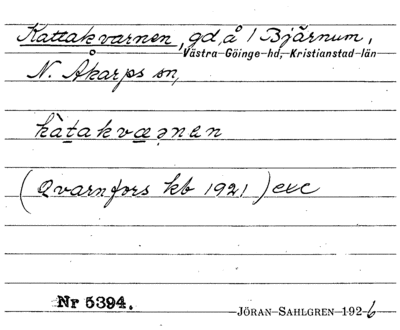 Kattakvarnen, gd, å 1 Bjärnum,
Västra Göinge hd, Kristianstad län
N. Åkarps sn,
kàtakvæņen
(Qvarnfors kb 1921) exc
Nr 5394.
JÖRAN SAHLGREN 1926